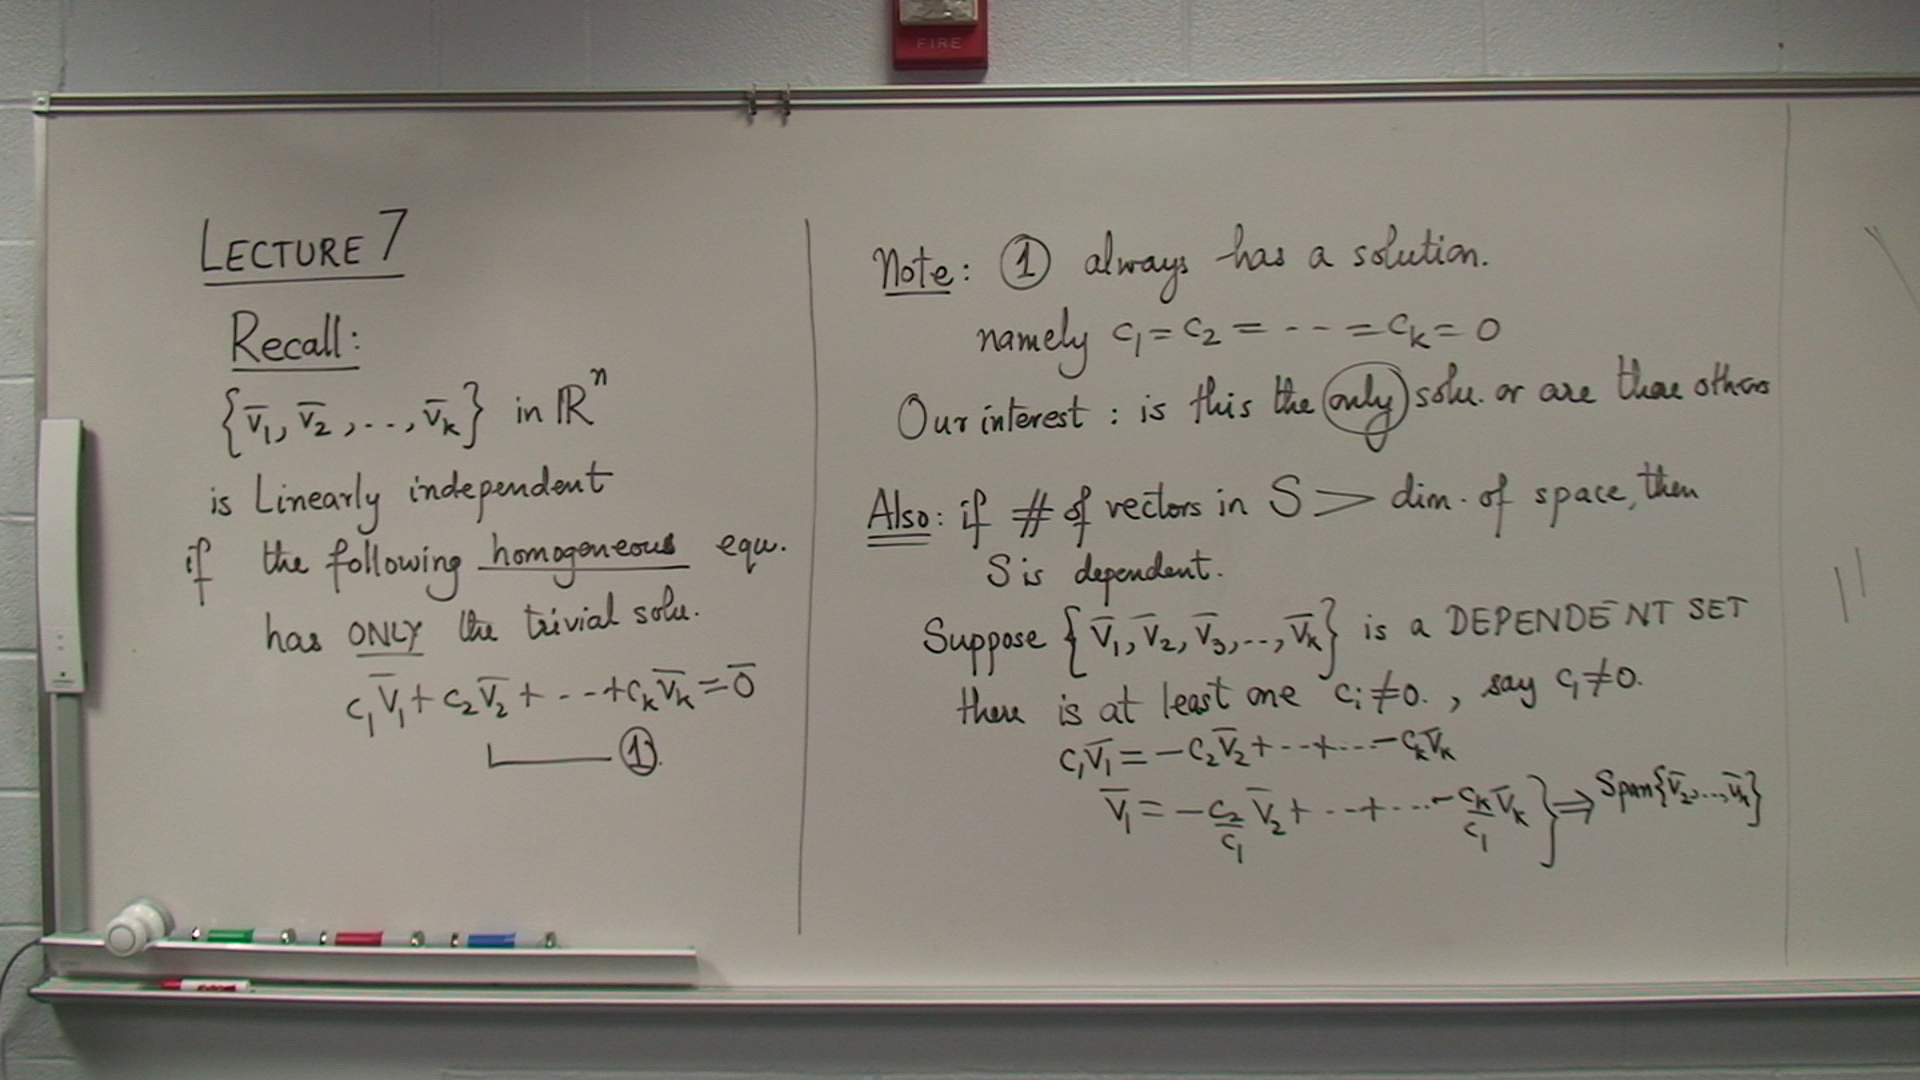 FIRE
LECTURE 7
Recall:
{v̄₁, v̄₂, . . , v̄ₖ} in ℝⁿ
is Linearly independent
if the following homogeneous equ.
has ONLY the trivial solu.
c₁v̄₁ + c₂v̄₂ + - - + cₖv̄ₖ = 0̄
①
Note: ① always has a solution.
namely c₁ = c₂ = - - - = cₖ = 0
Our interest : is this the only solu. or are there others
Also: if # of vectors in S > dim. of space, then
S is dependent.
Suppose {v̄₁, v̄₂, v̄₃, . . , v̄ₖ} is a DEPENDENT SET
there is at least one cᵢ ≠ 0. , say c₁ ≠ 0.
c₁v̄₁ = - c₂v̄₂ + - - + ... - cₖv̄ₖ
v̄₁ = - c₂/c₁ v̄₂ + - - + ... - cₖ/c₁ v̄ₖ } ⇒ Span{v̄₂, ..., v̄ₖ}